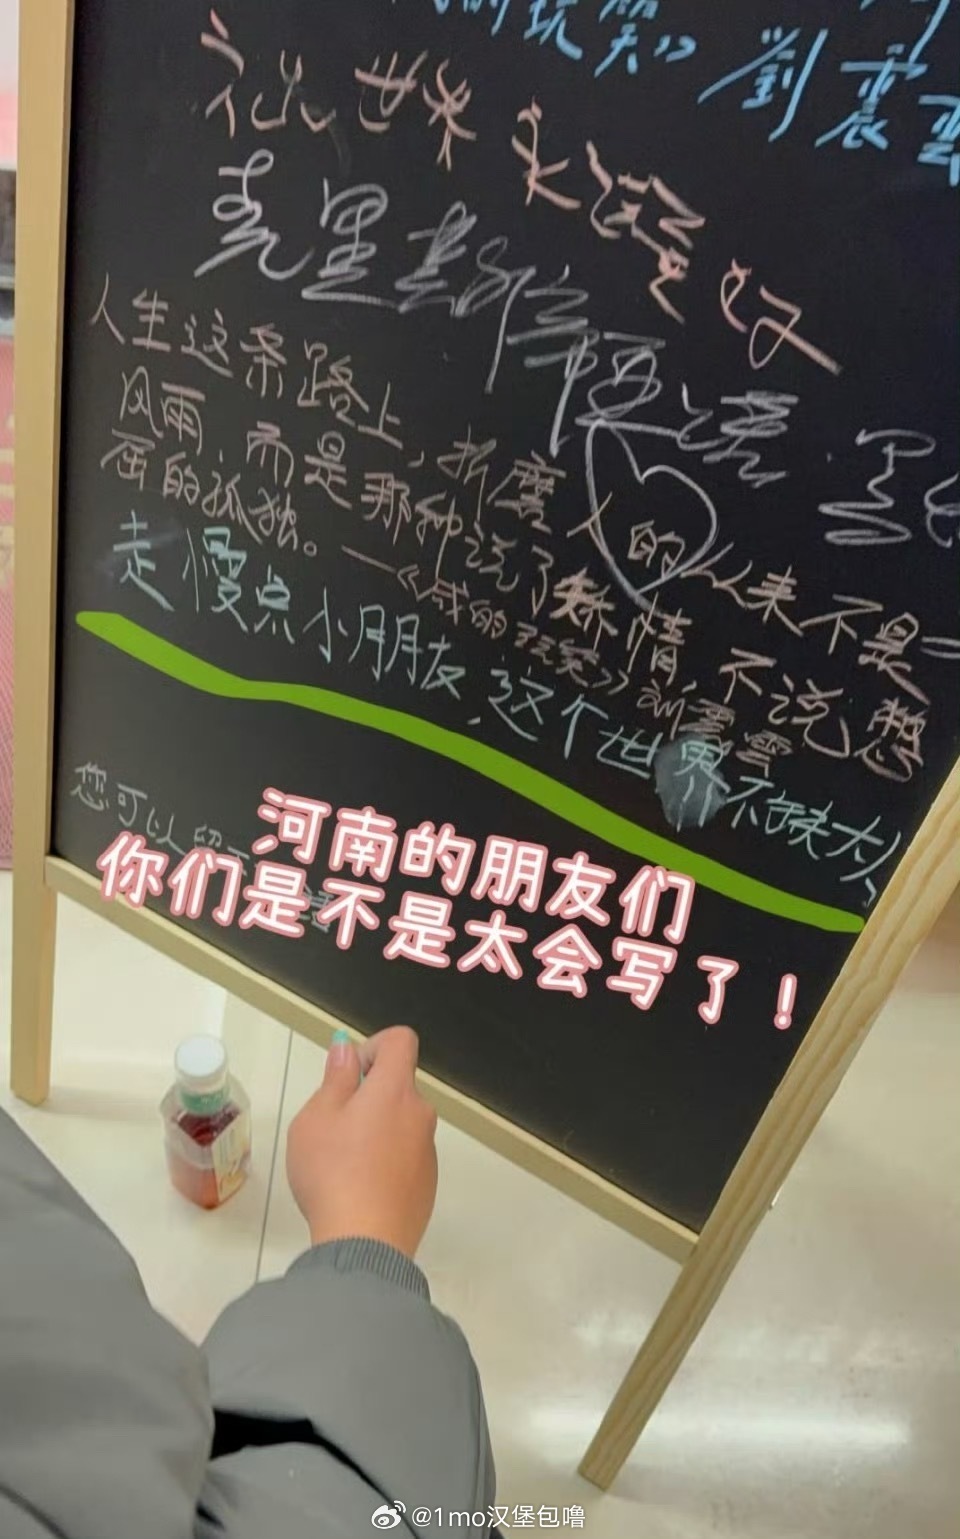 的玩笑》 劉震雲
祝世界永遠
克里斯
人生这条路上,折磨人的从来不是一
风雨,而是那种说了矫情,不说憋
屈的孤独。——《咸的玩笑》刘震雲
走慢点小朋友,这个世界不缺大人
您可以留
河南的朋友们
你们是不是太会写了!
@1mo汉堡包噜